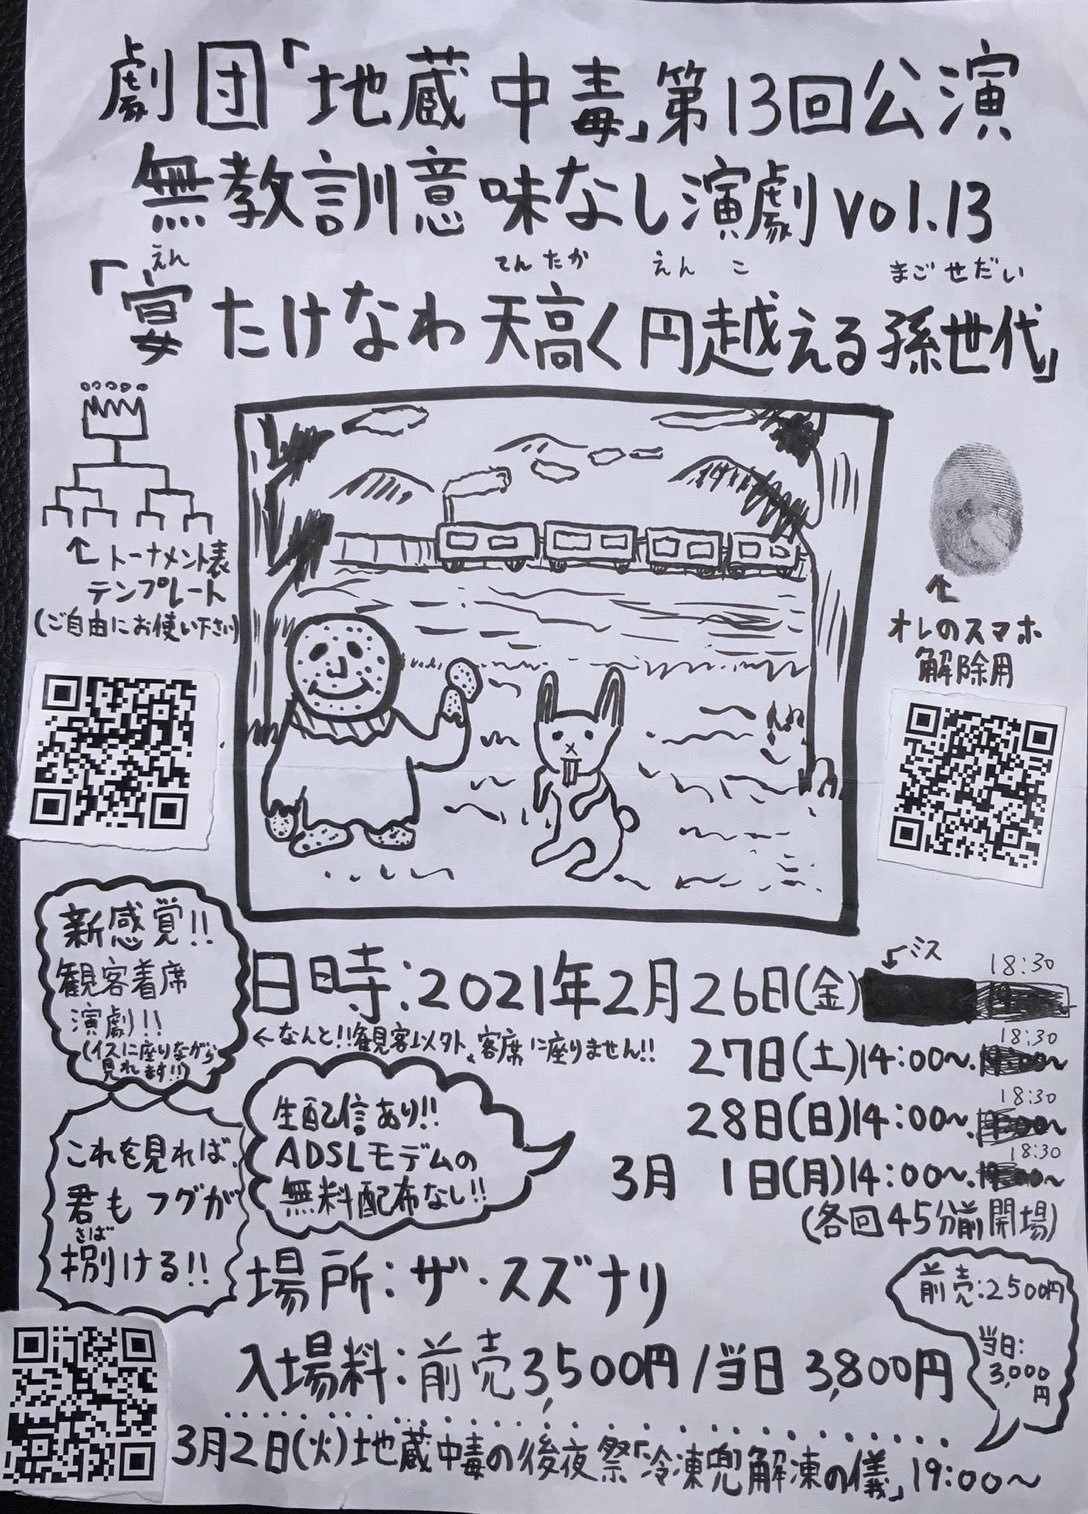 劇団「地蔵中毒」第13回公演
無教訓意味なし演劇vol.13
えん てんたか えんこ まごせだい
「宴たけなわ天高く円越える孫世代」
↑トーナメント表
テンプレート
(ご自由にお使い下さい)
↑
オレのスマホ
解除用
新感覚!!
観客着席
演劇!!
(イスに座りながら
見れます!!)
←ミス
日時:2021年2月26日(金) 18:30
←なんと!!観客以外、客席に座りません!!
27日(土)14:00〜. 18:30〜
28日(日)14:00〜. 18:30〜
3月1日(月)14:00〜. 18:30〜
(各回45分前開場)
生配信あり!!
ADSLモデムの
無料配布なし!!
これを見れば、
君もフグが
さば
捌ける!!
場所:ザ・スズナリ
入場料:前売3,500円/当日3,800円
前売:2500円
当日:
3,000
円
3月2日(火)地蔵中毒の後夜祭「冷凍兜解凍の儀」19:00〜